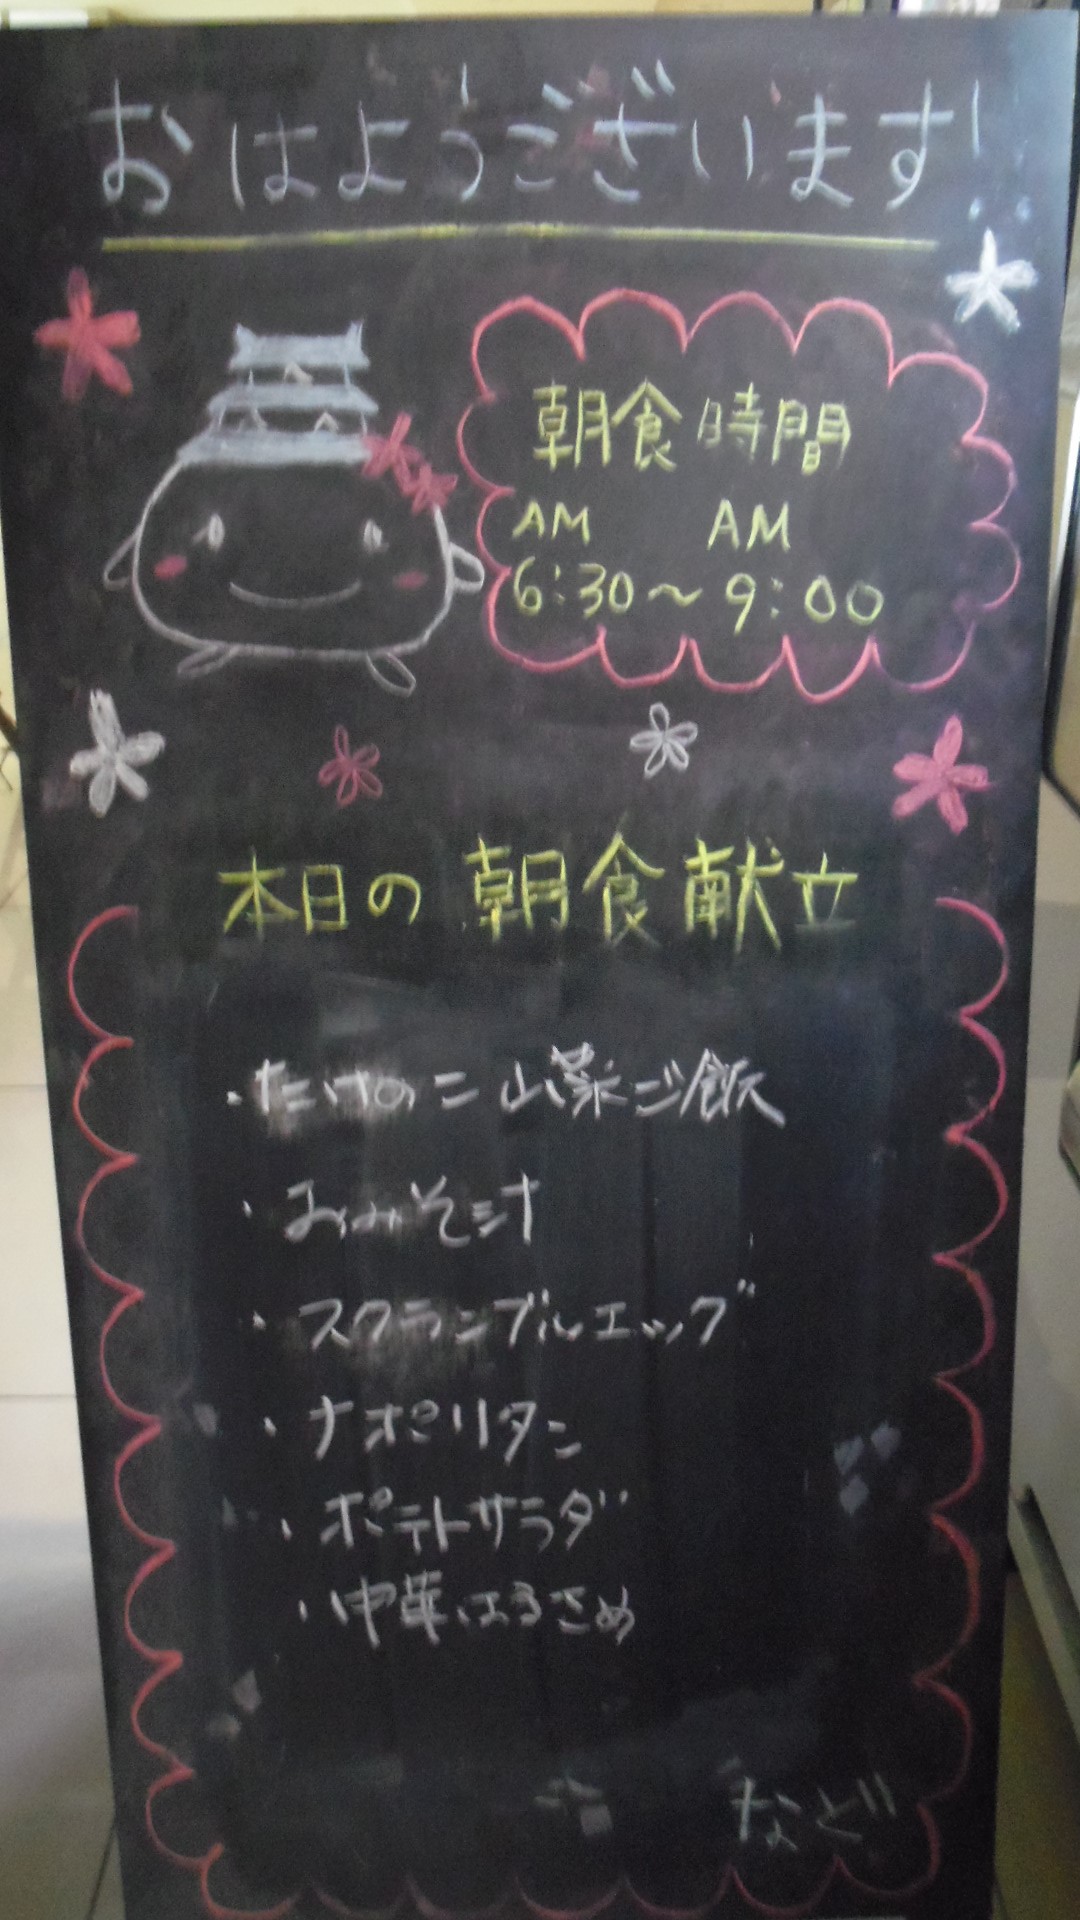 おはようございます!!
朝食時間
AM AM
6:30～9:00
本日の朝食献立
・たけのこ山菜ご飯
・おみそ汁
・スクランブルエッグ
・ナポリタン
・ポテトサラダ
・中華はるさめ
など